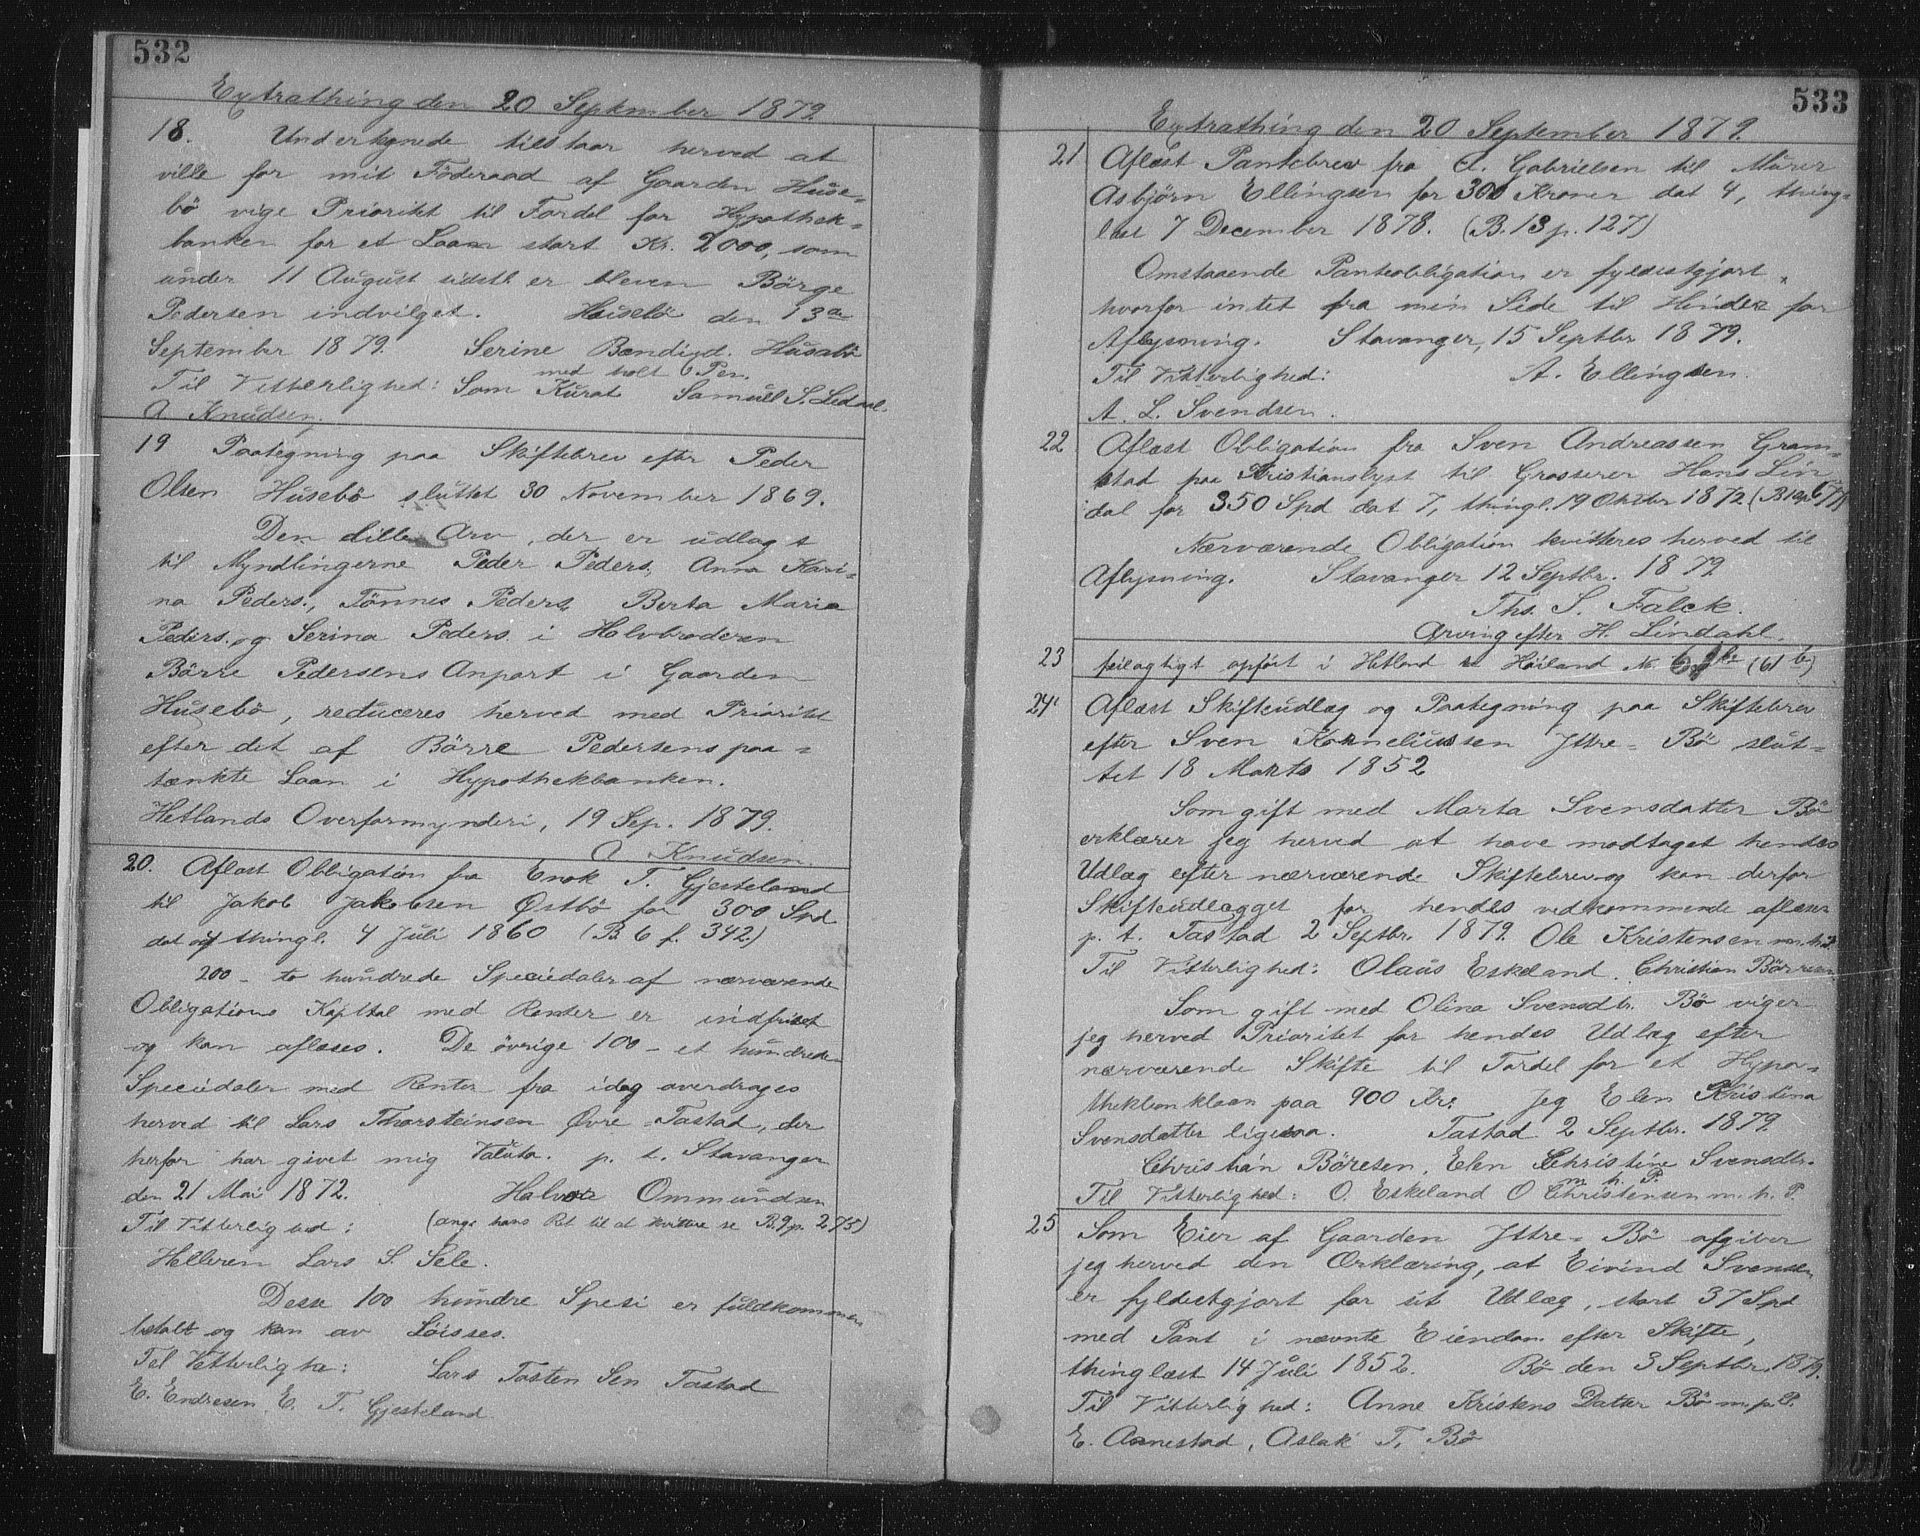 532
Extrathing den 20 September 1879
18. Undertegnede tilstaar herved at
ville for mit Föderaad af Gaarden Huse-
bö vige Prioritet til Fordel for Hypothek-
banken for et Laan stort Kr. 2000, som
under 11 August sidstl. er bleven Börge
Pedersen indvilget. Husebö den 13de
September 1879. Serine Bendixd. Husabö
med holt Pen.
Til Vitterlighed: Som Kurat Samuel S. Ledaal.
A Knudsen.
19 Paategning paa Skiftebrev efter Peder
Olsen Husebö sluttet 30 November 1869.
Den lille Arv, der er udlagt
til Myndlingerne Peder Peders, Anna Kari-
na Peders., Tönnes Peders Berta Maria
Peders. og Serina Peders i Halvbroderen
Börre Pedersens Anpart i Gaarden
Husebö, reduceres herved med Prioritet
efter det af Börre Pedersens paa-
tænkte Laan i Hypothekbanken.
Hetlands Overformynderi, 19 Sep. 1879.
A Knudsen.
20. Aflæst Obligation fra Enok T. Gjesteland
til Jakob Jakobsen Østbö for 300 Spd
dat og thingl. 4 Juli 1860 (B 6 f. 342.)
200 - to hundrede Speciedaler af nærværende
Obligations Kapital med Renter er indfriet
og kan aflæses. De övrige 100 - et hundrede
Speciedaler med Renter fra idag overdrages
herved til Lars Thorsteinsen Øvre-Tastad, der
herfor har givet mig Valuta. p. t. Stavanger
den 21 Mai 1872. Halvor Ommundsen
Til Vitterlighed: (ang. hans Ret til at kvittere se B. 9 p. 275)
Helleren Lars S. Sele.
Desse 100 hundre Spesi er fuldkommen
betalt og kan av Löisses.
Tel Vetterlighe: Lars Tosten Sen Tastad
E. Endresen, E. T. Gjesteland
533
Extrathing den 20 September 1879.
21 Aflæst Pantebrev fra A. Gabrielsen til Murer
Asbjörn Ellingsen for 300 Kroner dat 4, thing-
læst 7 December 1878. (B. 13 p. 127)
Omstaaende Panteobligation er fyldestgjort,
hvorfor intet fra min Side til Hinder for
Aflysning. Stavanger, 15 Septbr 1879.
Til Vitterlighed: A. Ellingsen.
A. L. Svendsen.
22 Aflæst Obligation fra Sven Andreassen Gram-
stad paa Kristianslyst til Grosserer Hans Lin-
dal for 350 Spd dat 7, thingl. 19 Oktbr 1872. (B 10 p 677)
Nærværende Obligation kvitteres herved til
Aflysning. Stavanger 12 Septbr. 1879
Ths. S. Falck.
Arving efter H. Lindahl.
23 feilagtigt opført i Hetland se Höiland N. (61 b)
24 Aflæst Skifteudlæg og Paategning paa Skiftebrev
efter Sven Korneliussen Ytre-Bö slut-
tet 18 Marts 1852
Som gift med Marta Svensdatter Bö
erklærer jeg herved at have modtaget hendes
Udlæg efter nærværende Skiftebrev og kan derfor
Skifteudlægget for hendes vedkommende aflæses
p. t. Tastad 2 Septbr. 1879. Ole Kristensen m. h. P.
Til Vitterlighed: Olaus Eskeland. Christian Börresen
Som gift med Olina Svensdtr. Bö viger
jeg herved Prioritet for hendes Udlæg efter
nærværende Skifte til Fordel for et Hypo-
thekbanklaan paa 900 Kr. Jeg Elen Kristina
Svensdatter ligesaa. Tastad 2 Septbr. 1879.
Christian Böresen, Elen Christine Svensdtr.
m. h. P.
Til Vitterlighed: O. Eskeland O Christensen m. h. P.
25 Som Eier af Gaarden Yttre-Bö afgiver
jeg herved den Erklæring, at Eivind Svensen
er fyldestgjort for sit Udlæg, stort 37 Spd
med Pant i nævnte Eiendom efter Skifte,
thinglæst 14 Juli 1852. Bö den 3 Septbr. 1879.
Til Vitterlighed: Anne Kristens Datter Bö m. p. P.
E. Aanestad, Aslak T. Bö